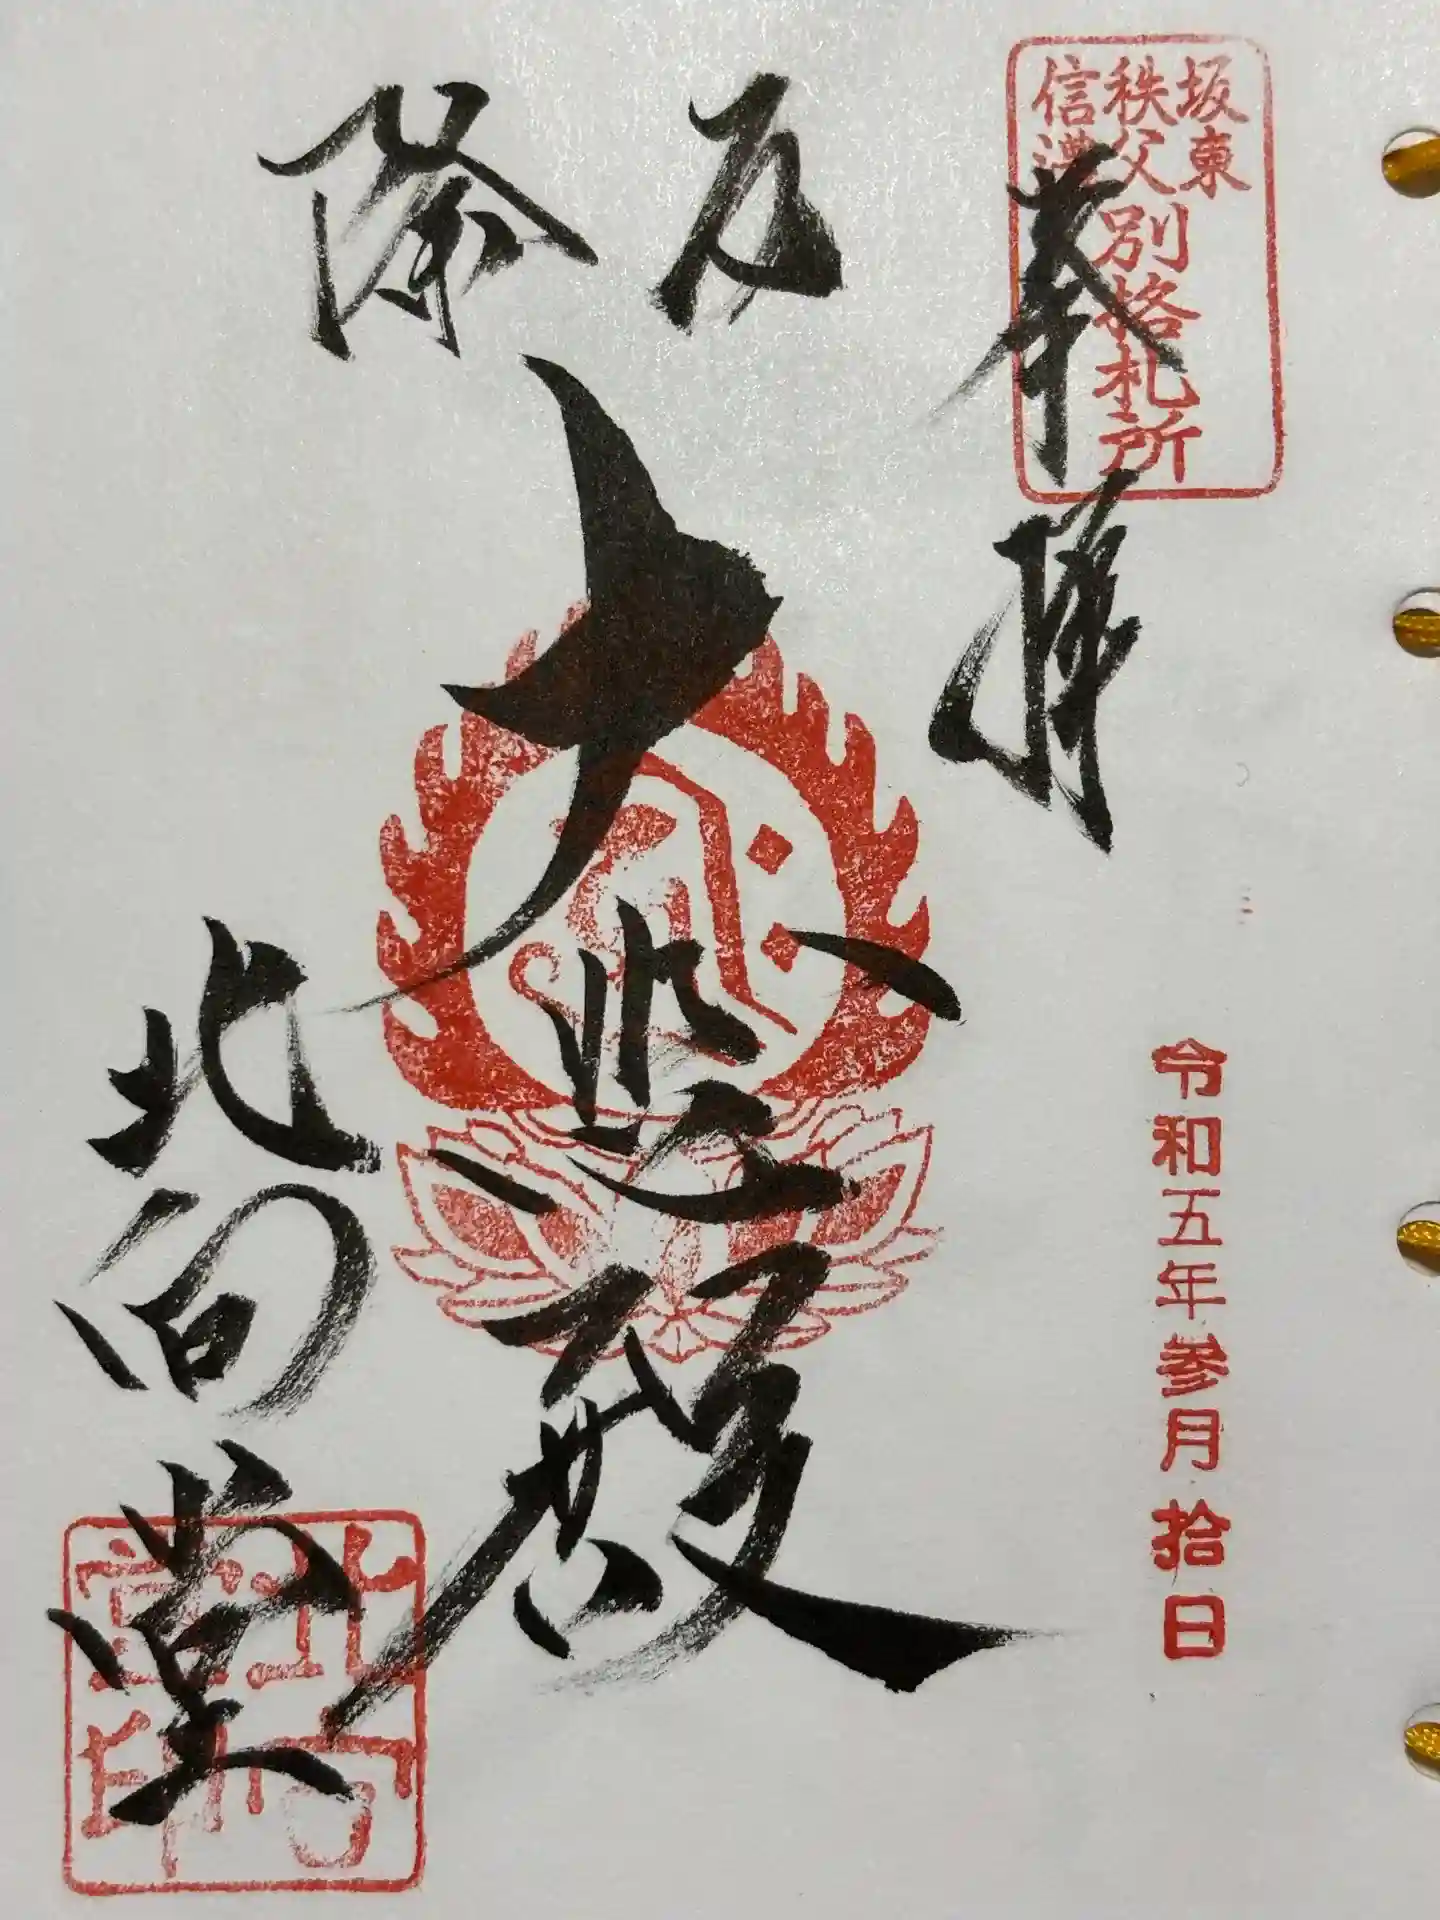 坂東
秩父
信濃
別格札所
奉拝
令和五年参月拾日
厄除
大悲殿
北向堂
北向堂印